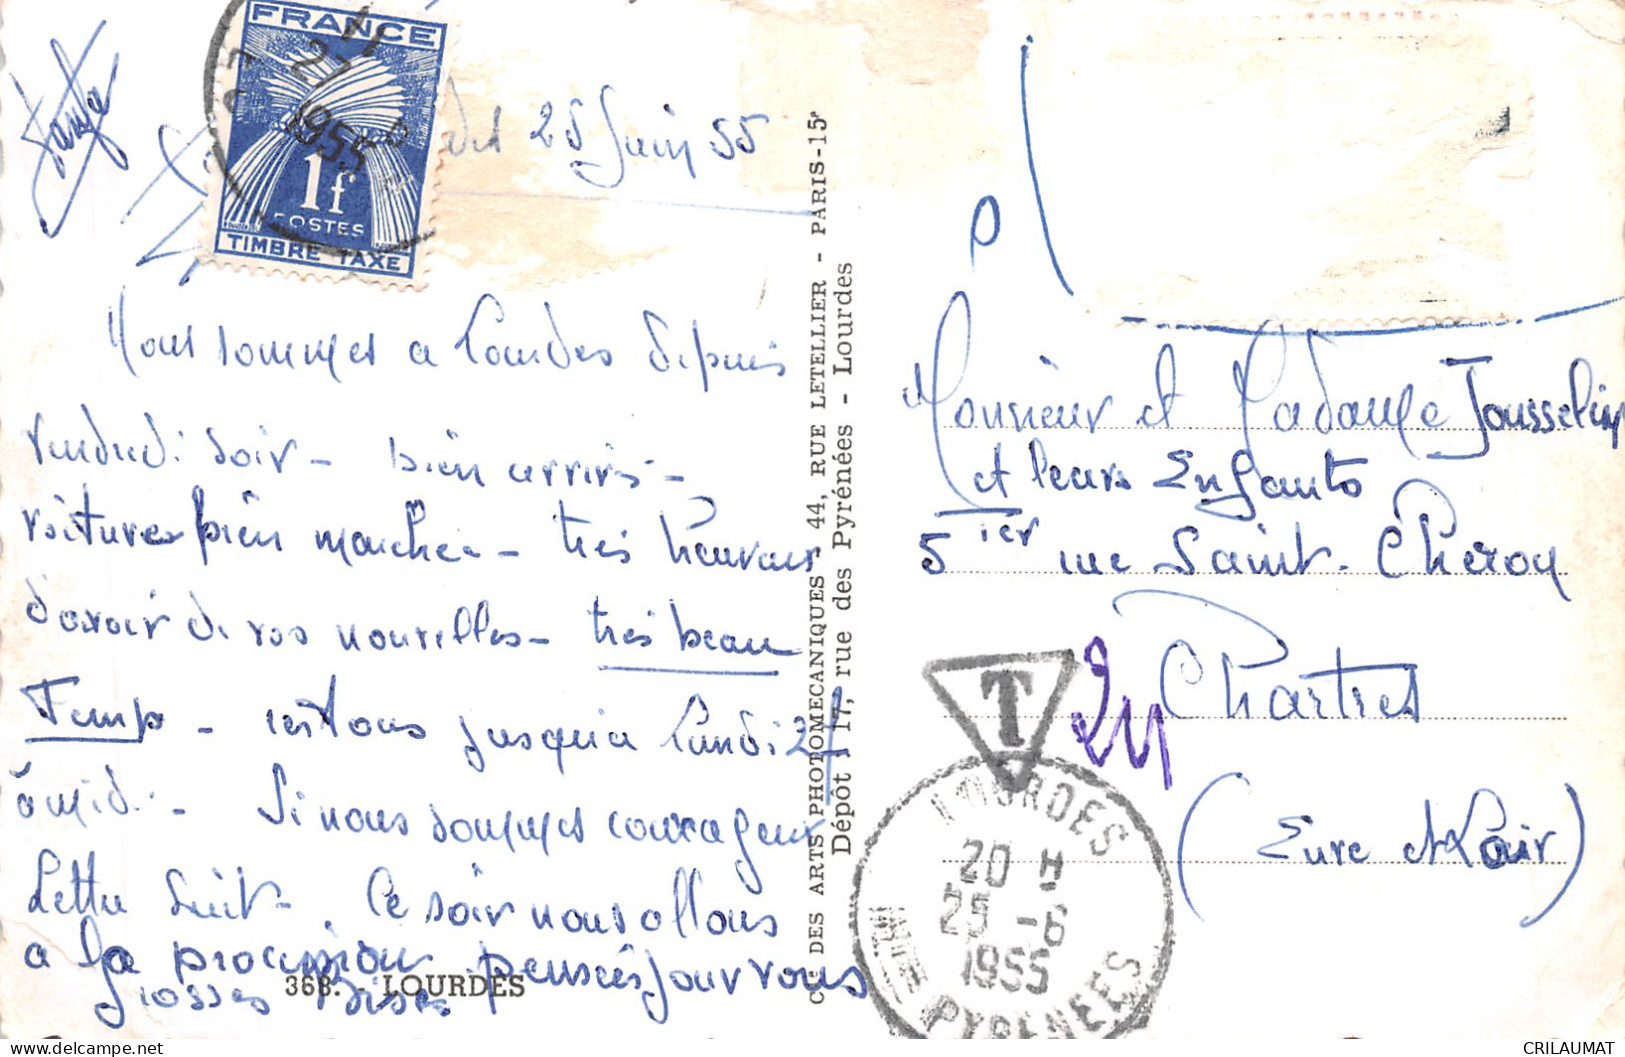 FRANCE
27
1955
1f
POSTES
TIMBRE TAXE
25 Juin 55
Nous sommes a Lourdes depuis
vendredi soir - bien arrivés -
voitures bien marchée - très heureux
d'avoir de vos nouvelles - très beau
Temps - restons jusqu'a Lundi 27
à midi - Si nous sommes courageux
Lettre suit - . Ce soir nous allons
a la procession pensées pour vous
grosses Bises
368. - LOURDES
CIE DES ARTS PHOTOMECANIQUES - 44, RUE LETELLIER - PARIS-15e
Dépôt : 17, rue des Pyrénées - Lourdes
Monsieur et Madame Jousselin
et leurs Enfants
5 ier rue Saint-Cheron
Chartres
(Eure et Loir)
T
LOURDES
20 H
25 -6
1955
PYRENEES
CRILAUMAT